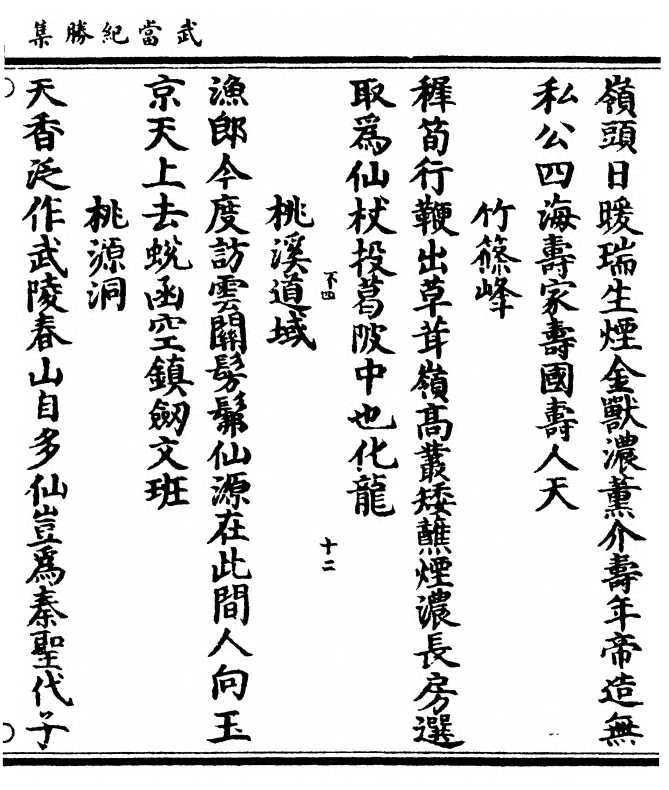 武當紀勝集
嶺頭日暖瑞生煙金獸濃薰介壽年帝造無
私公四海壽家壽國壽人天
竹篠峰
稺筍行鞭出草茸嶺高叢矮蘸煙濃長房選
取爲仙杖投葛陂中也化龍
不四
十二
桃溪道域
漁郎今度訪雲關髣髴仙源在此間人向玉
京天上去蛻函空鎮劒文班
桃源洞
天香泛作武陵春山自多仙豈爲秦聖代子